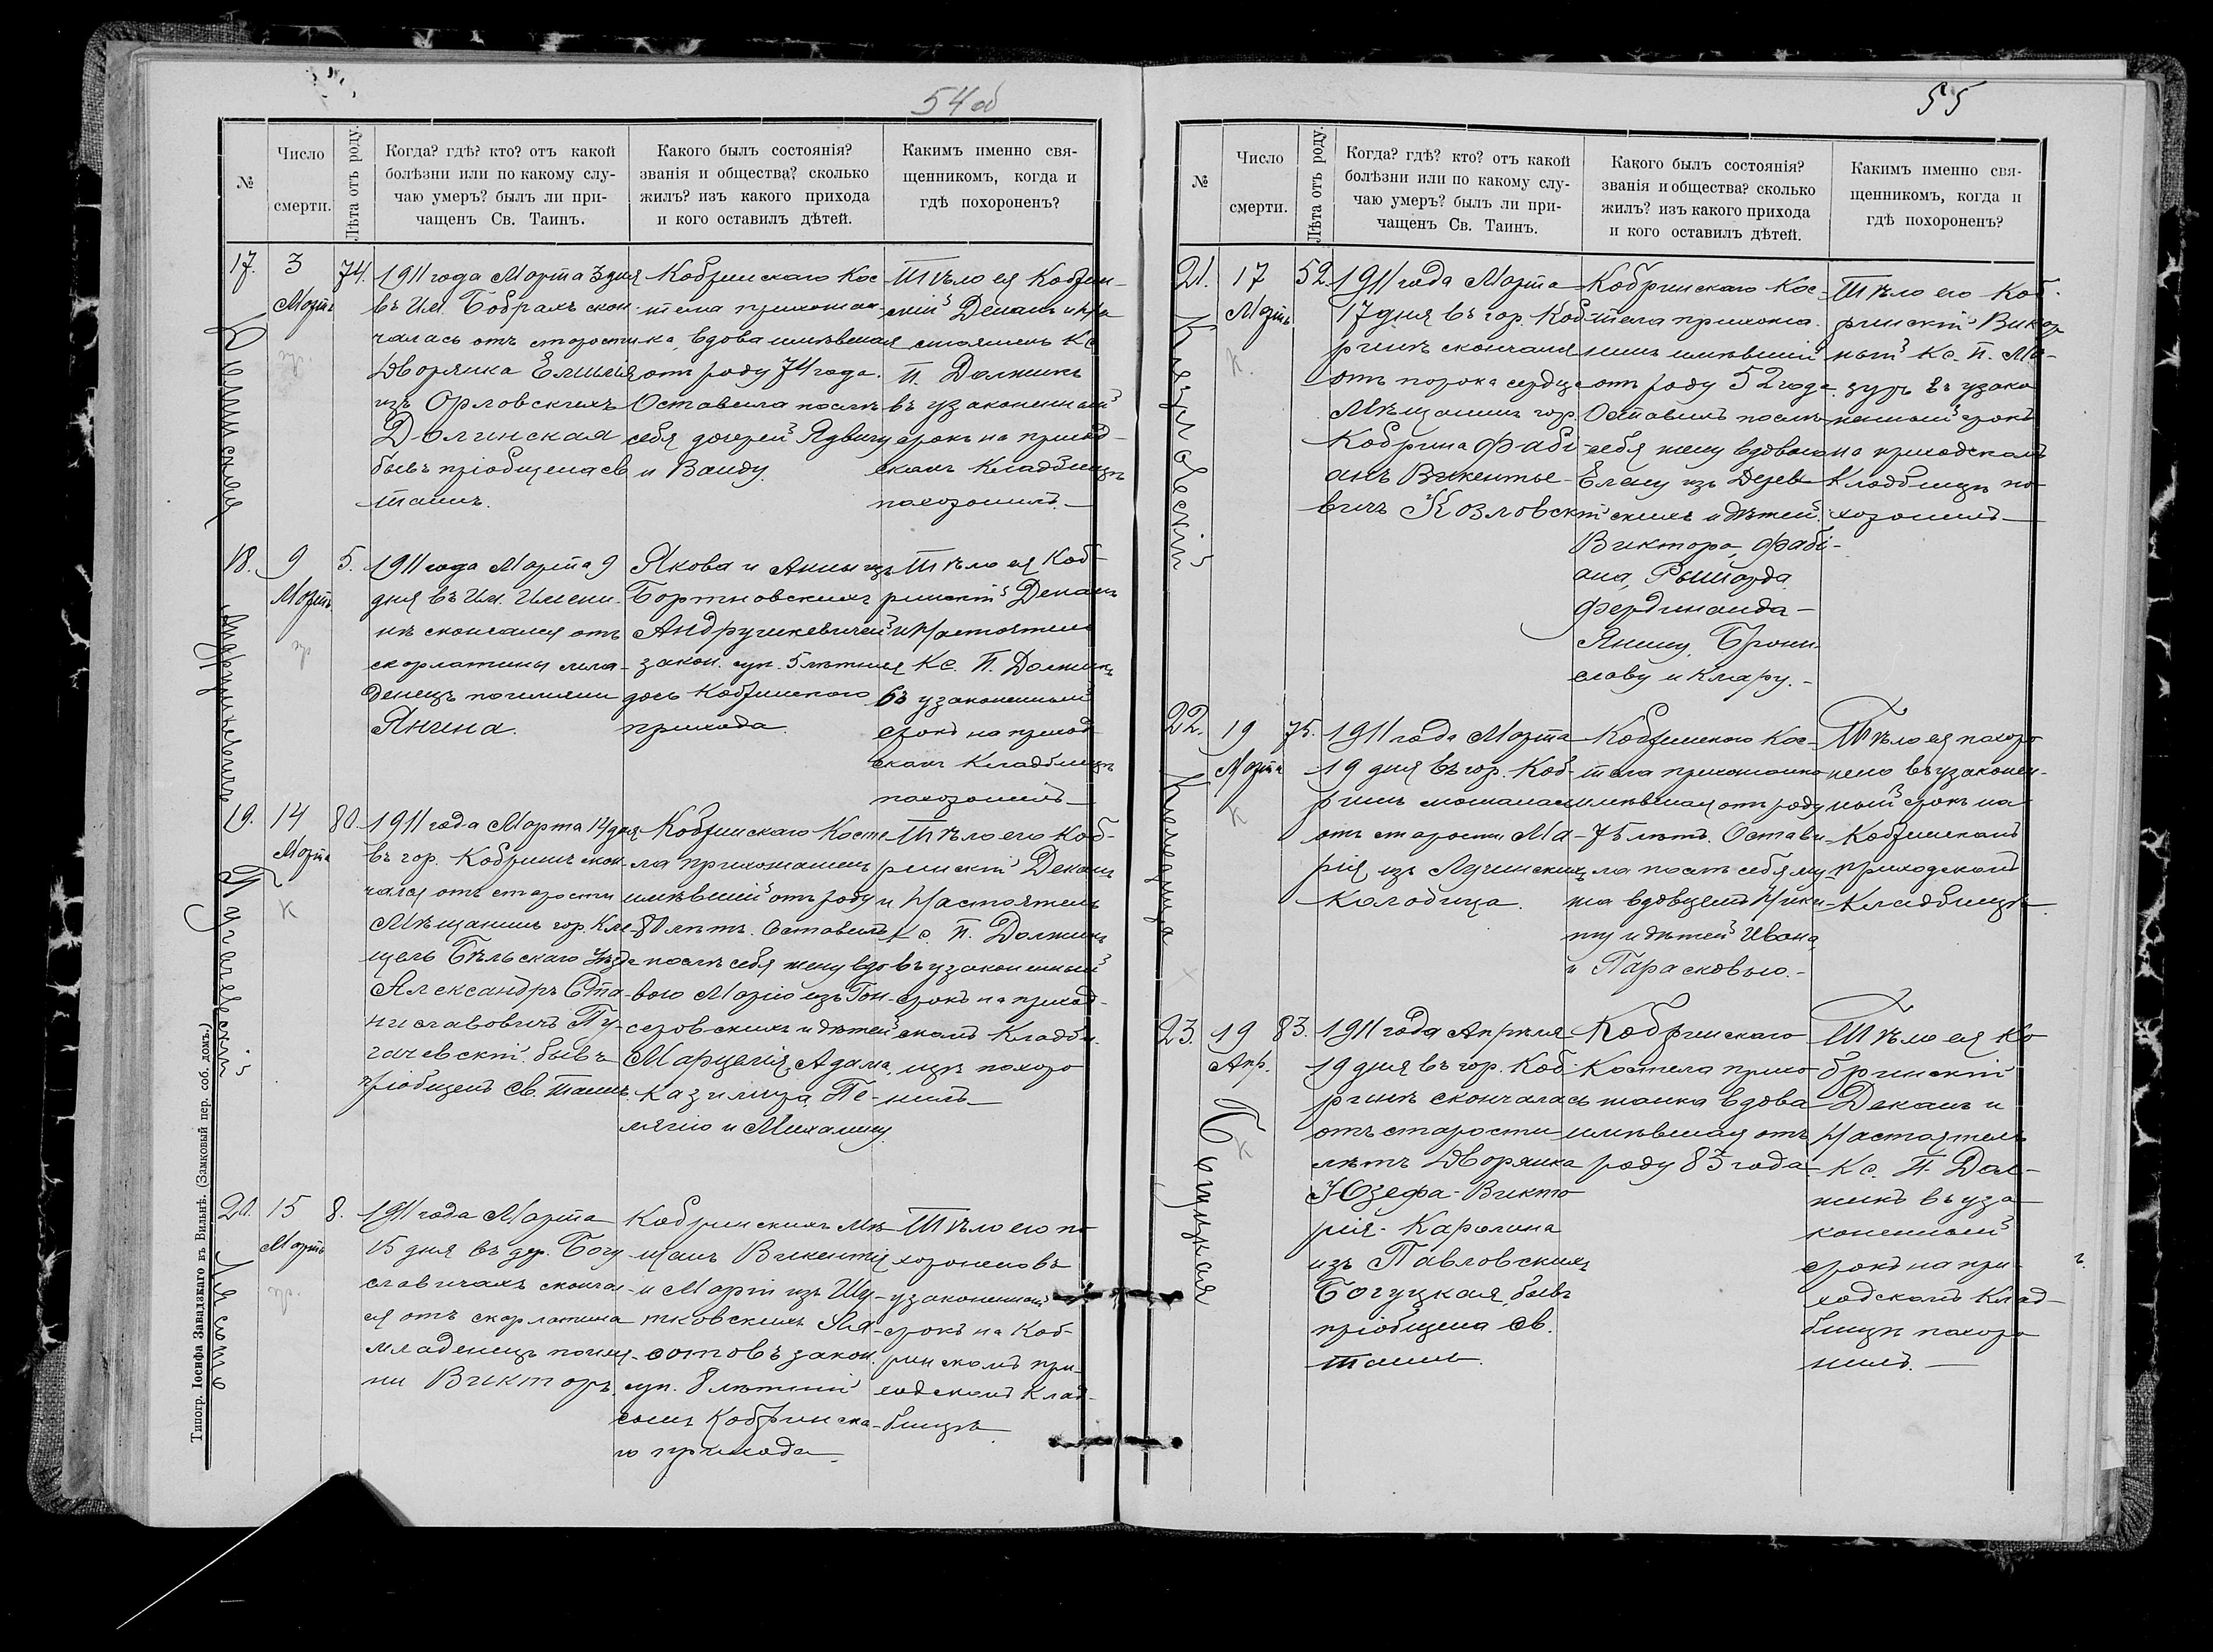 54 об
№
Число
смерти.
Лѣта отъ роду.
Когда? гдѣ? кто? отъ какой
болѣзни или по какому слу-
чаю умеръ? былъ ли при-
чащенъ Св. Таинъ.
Какого былъ состоянія?
званія и общества? сколько
жилъ? изъ какого прихода
и кого оставилъ дѣтей.
Какимъ именно свя-
щенникомъ, когда и
гдѣ похороненъ?
17.
Долинская
3
Марта
пр.
74.
1911 года Марта 3 дня
въ Им. Бобрахъ скон-
чалась отъ старости
Дворянка Емилія
изъ Орловскихъ
Долинская
бывъ пріобщена св
таинъ.
Кобринскаго Кос
тела прихожан
ка, вдова имѣвшая
отъ роду 74 года.
Оставила послѣ
себя дочерей Ядвигу
и Ванду.
Тѣло ея Кобрин-
скій Деканъ и На
стоятель Кс
П. Должикъ
въ узаконенный
срокъ на приход-
скомъ Кладбищѣ
похоронилъ.
18.
Андрушкевичъ
9
Марта
пр
5.
1911 года Марта 9
дня въ Им. Имени-
нѣ скончался отъ
скарлатины мла-
денецъ по имени
Янина.
Якова и Анны изъ
Бортновскихъ
Андрушкевичей
закон. суп. 5 лѣтняя
дочь Кобринскаго
прихода.
Тѣло ея Коб-
ринскій Деканъ
и Настоятель
Кс. П. Должикъ
въ узаконенный
срокъ на приход
скомъ Кладбищѣ
похоронилъ
19.
Пугачевскій
14
Марта
К
80.
1911 года Марта 14 дня
въ гор. Кобринѣ скон-
чался отъ старости
Мѣщанинъ гор. Кле-
щель Бѣльскаго Уѣзда
Александръ Ста-
ниславовичъ Пу-
гачевскій бывъ
пріобщенъ Св. таинъ
Кобринскаго Косте
ла прихожанинъ
имѣвшій отъ роду
80 лѣтъ. Оставилъ
послѣ себя жену вдо
вою Марію изъ Гон-
серовскихъ и дѣтей
Марцелія, Адама,
Казиміра, Пе-
лягію и Михалину
Тѣло его Коб-
ринскій Деканъ
и Настоятель
Кс. П. Должикъ
въ узаконенный
срокъ на приход-
скомъ Кладби-
щѣ похоро
нилъ
20.
15
Марта
пр.
8.
1911 года Марта
15 дня въ дер. Богу
славичахъ сконча-
ся отъ скарлатина
младенецъ по име-
ни Викторъ.
Кобринскихъ Мѣ
щанъ Викентія
и Маріи изъ Шу-
тковскихъ
закон.
суп. 8 лѣтній
сынъ Кобринска-
го прихода
Тѣло его по
хоронено въ
узаконенный
срокъ на Коб-
ринскомъ при
ходскомъ Клад-
бищѣ.
Типогр. Іосифа Завадзкаго въ Вильнѣ. (Замковый пер. соб. домъ.)
55
№
Число
смерти.
Лѣта отъ роду.
Когда? гдѣ? кто? отъ какой
болѣзни или по какому слу-
чаю умеръ? былъ ли при-
чащенъ Св. Таинъ.
Какого былъ состоянія?
званія и общества? сколько
жилъ? изъ какого прихода
и кого оставилъ дѣтей.
Какимъ именно свя-
щенникомъ, когда и
гдѣ похороненъ?
21.
Козловскій
17
Марта
К.
52.
1911 года Марта
17 дня въ гор. Коб-
ринѣ скончался
отъ порока сердца
Мѣщанинъ гор.
Кобрина Фабі-
анъ Викентье-
вичъ Козловскій
Кобринскаго Кос-
тела прихожа-
нинъ имѣвшій
отъ роду 52 года
Оставилъ послѣ
себя жену вдовою
Елену изъ
и дѣтей:
Виктора, Фабі-
ана, Рышарда
Фердинанда-
Янину, Брони
славу и Клару.-
Тѣло его Коб-
ринскій Викар
ный Кс. П. Ма-
зуръ въ узако
ненный срокъ
на приходскомъ
Кладбищѣ по-
хоронилъ
22.
Колодница
19
Марта
К
75.
1911 года Марта
19 дня въ гор. Коб-
ринѣ скончалась
отъ старости Ма-
рія изъ Лучинскихъ
Колодица.
Кобринскаго Кос-
тела прихожанка
имѣвшая отъ роду
75 лѣтъ. Остави-
ла послѣ себя му-
жа вдовцемъ Ники-
ту и дѣтей Ивана,
и Парасковью.-
Тѣло ея похоро
нено въ узаконен-
ный срокъ на
Кобринскомъ
приходскомъ
Кладбищѣ.
23.
Богуцкая
19
Апр.
К
83.
1911 года Апрѣля
19 дня въ гор. Коб-
ринѣ скончалась
отъ старости
лѣтъ Дворянка
Юзефа-Викто
рія-Каролина
изъ Павловскихъ
Богуцкая, бывъ
пріобщена Св.
таинъ.
Кобринскаго
Костела прихо
жанка вдова
имѣвшая отъ
роду 83 года.
Тѣло ея Ко
бринскій
Деканъ и
Настоятель
Кс. П. Дол-
жикъ въ уза
коненный
срокъ на при-
ходскомъ Клад-
бищѣ похоро
нилъ.